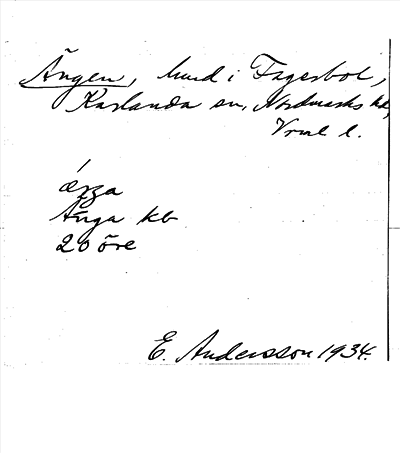 Ängen, hmd i Fagerbol,
Karlanda sn, Nordmarks hd,
Vrml l.
Änga kb
20 öre
E. Andersson 1934.